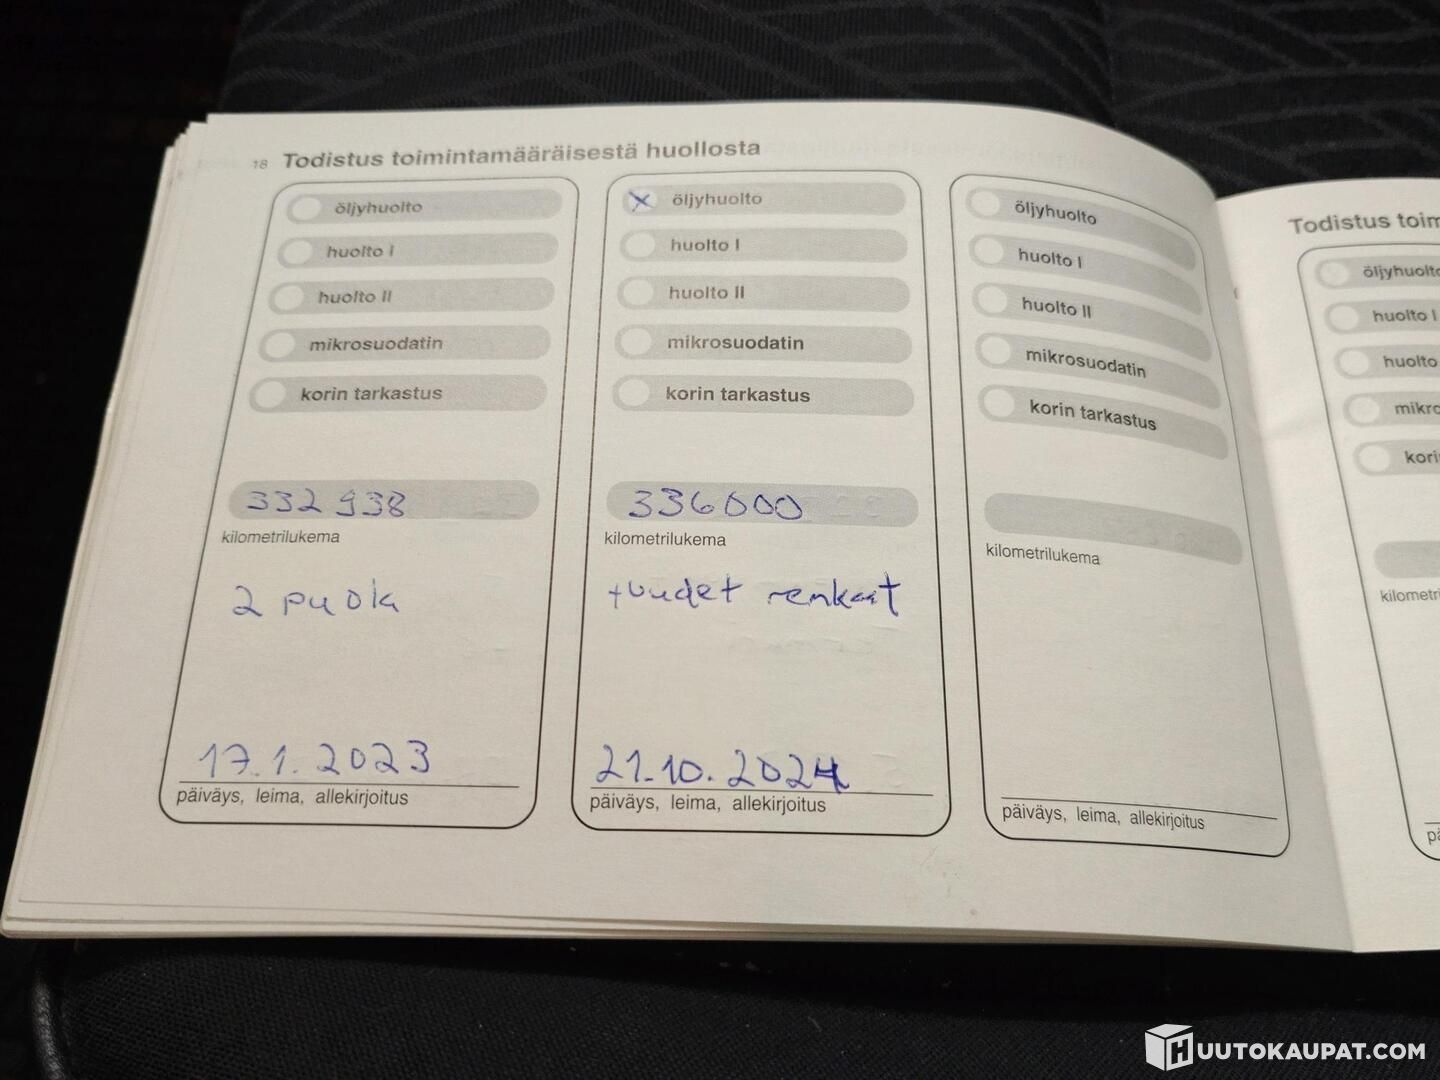 18 Todistus toimintamääräisestä huollosta
öljyhuolto
huolto I
huolto II
mikrosuodatin
korin tarkastus
332 938
kilometrilukema
2 puola
17.1.2023
päiväys, leima, allekirjoitus
öljyhuolto
huolto I
huolto II
mikrosuodatin
korin tarkastus
336000
kilometrilukema
+uudet renkaat
21.10.2024
päiväys, leima, allekirjoitus
öljyhuolto
huolto I
huolto II
mikrosuodatin
korin tarkastus
kilometrilukema
päiväys, leima, allekirjoitus
Todistus toim
öljyhuolto
huolto I
huolto
mikro
kori
kilometri
pä
HUUTOKAUPAT.COM